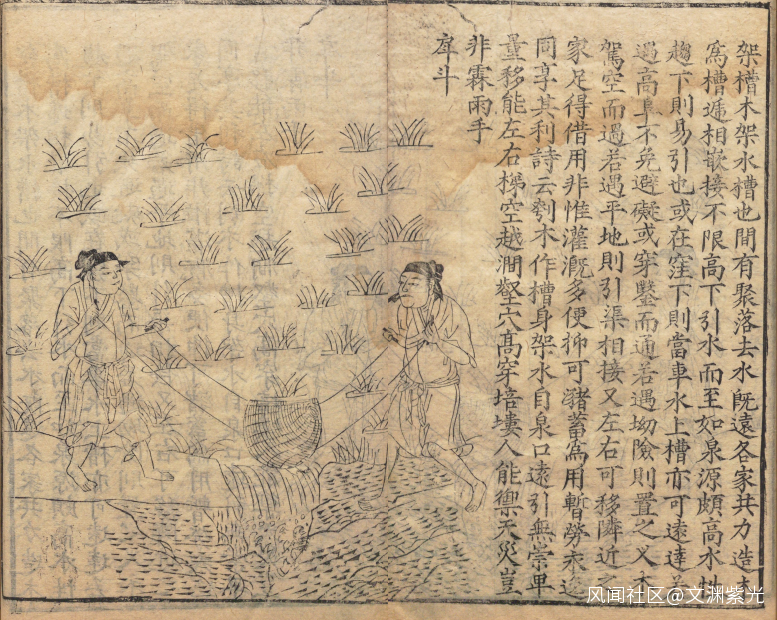 架槽木架水槽也間有聚落去水旣遠各家共力造木
爲槽遞相嵌接不限高下引水而至如泉源頗高水性
趨下則易引也或在窪下則當車水上槽亦可遠達若
遇高阜不免避礙或穿鑿而通若遇坳險則置之乂木
駕空而過若遇平地則引渠相接又左右可移隣近之
家足得借用非惟灌漑多便抑可瀦蓄爲用暫勞永逸
同享其利詩云刳木作槽身架水自泉口遠引無崇卑
量移能左右梯空越澗壑穴高穿培塿人能禦天災豈
非霖雨手
戽斗
风闻社区@文渊紫光